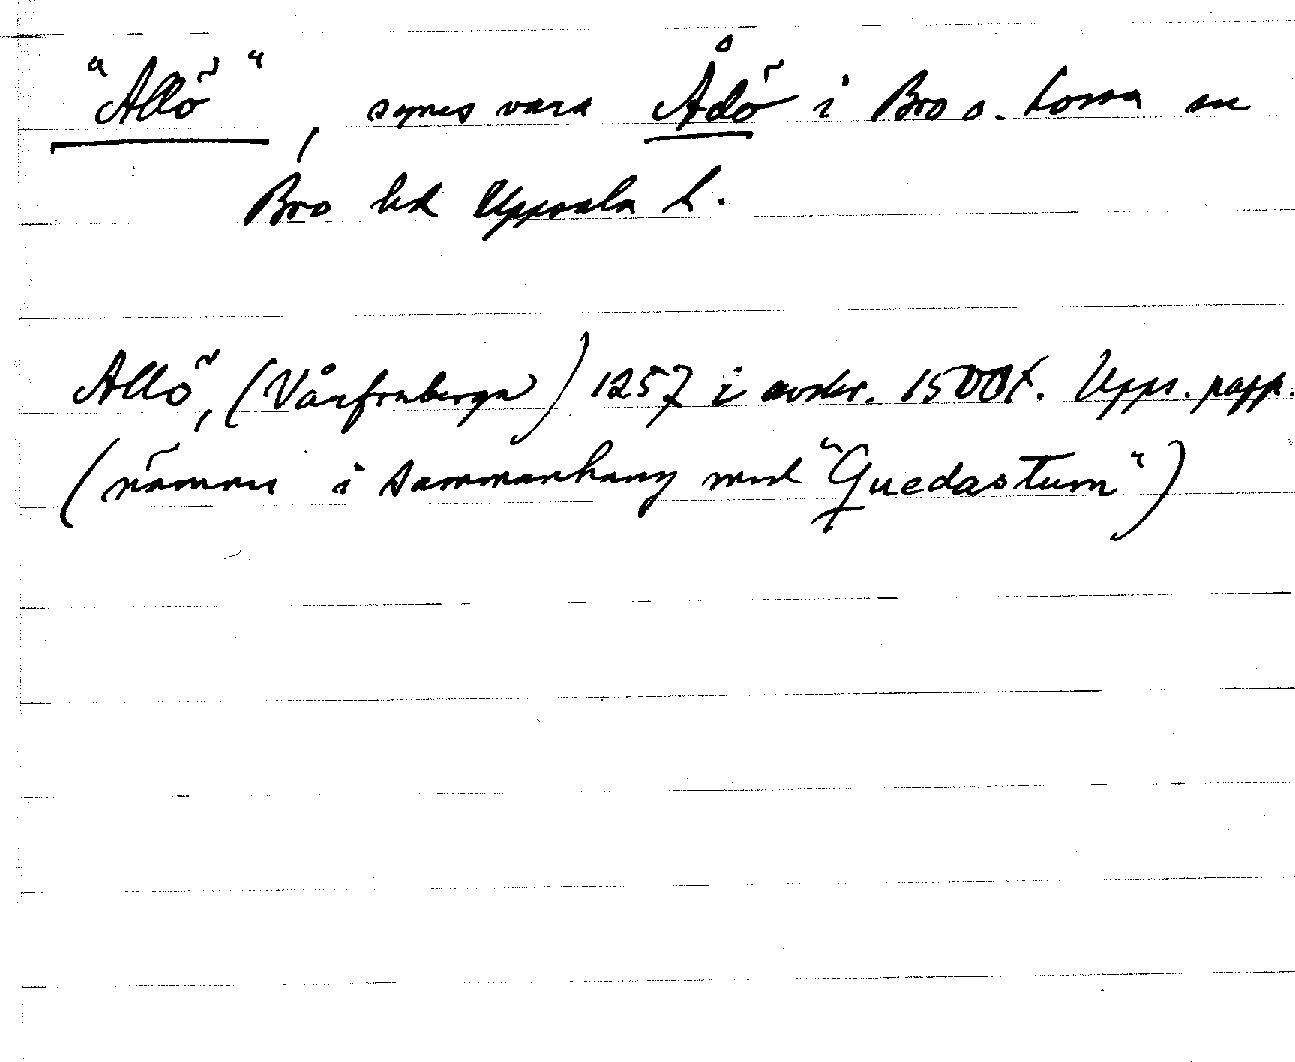 "Allö", synes vara Ådö i Bro o. Lossa sn
Bro hd Uppsala L.
Allö, (Vårfruberga) 1257 i avskr. 1500t. Upps. papp.
(nämnes i sammanhang med "Quedastum")